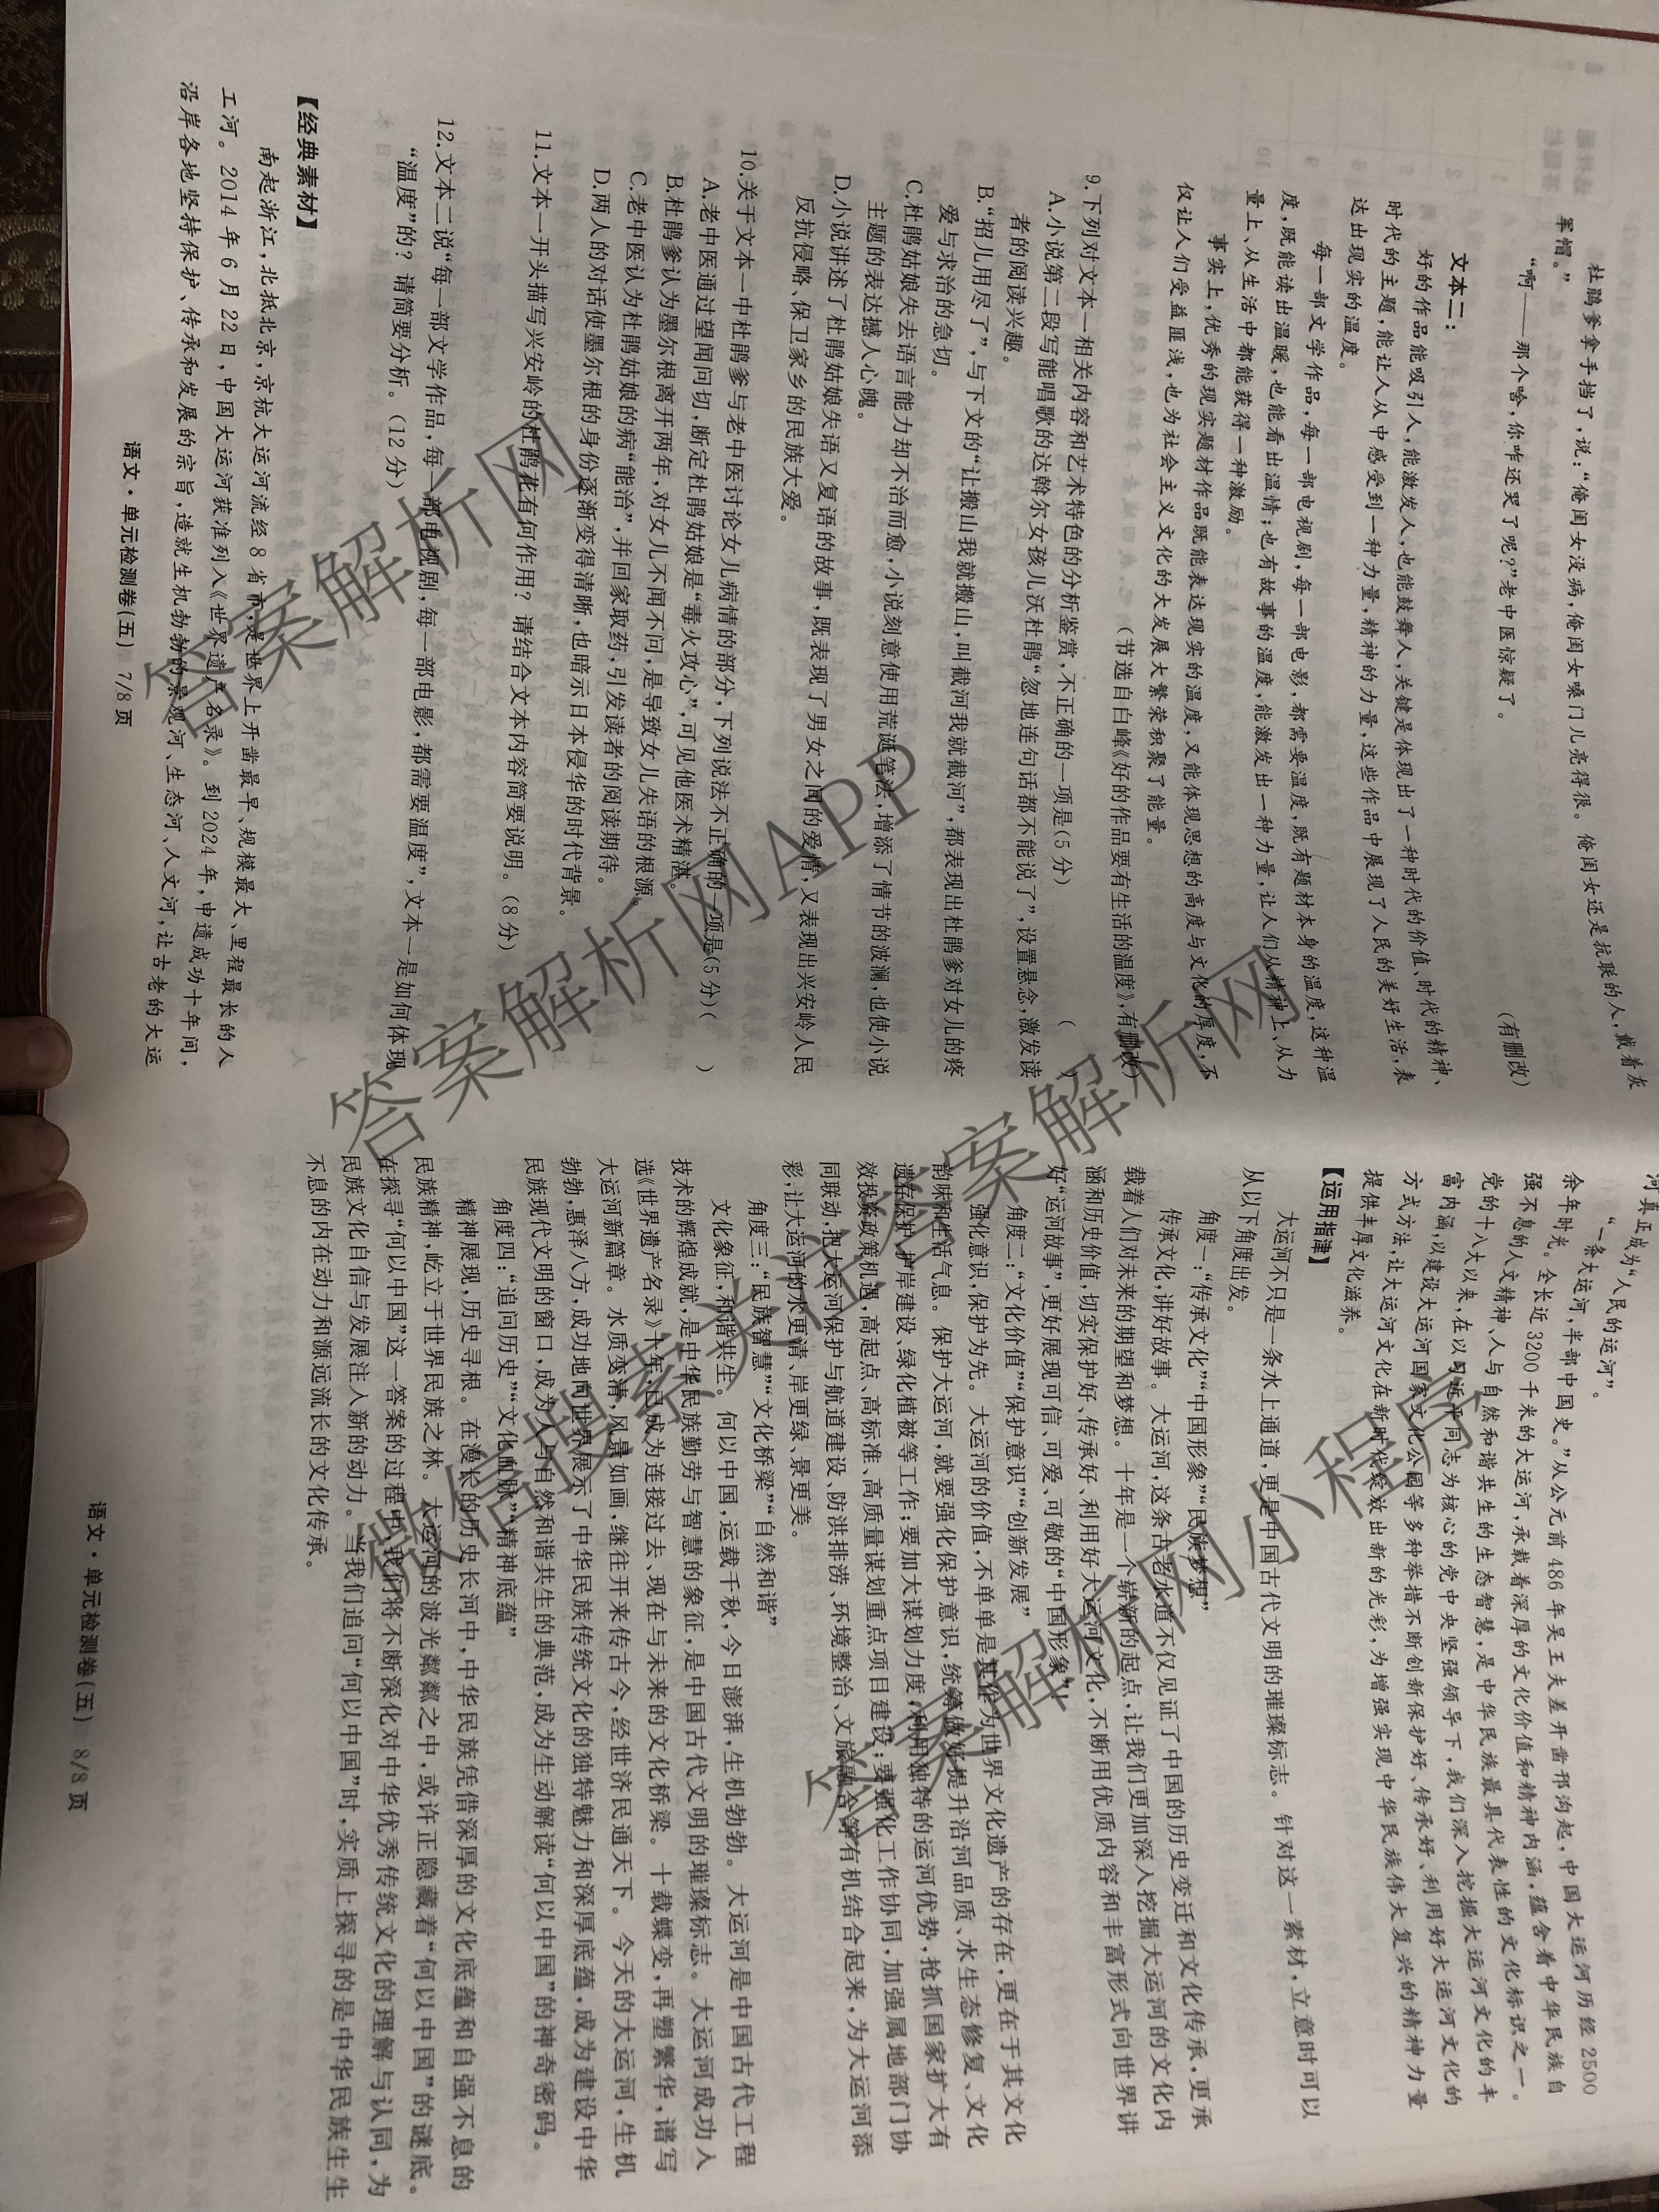 杜鹃爹拿手挡了，说：“俺闺女没病，俺闺女嗓门儿亮得很。俺闺女还是抗联的人，戴着灰
军帽。”
“啊——那个啥，你咋还哭了呢？”老中医惊疑了。
（有删改）
文本二：
好的作品能吸引人，能激发人，也能鼓舞人，关键是体现出了一种时代的价值、时代的精神、
时代的主题，能让人从中感受到一种力量，精神的力量，这些作品中展现了人民的美好生活，表
达出现实的温度。
每一部文学作品，每一部电视剧，每一部电影，都需要温度，既有题材本身的温度，这种温
度，既能读出温暖，也能看出温情；也有故事的温度，能激发出一种力量，让人们从精神上、从力
量上、从生活中都能获得一种激励。
事实上，优秀的现实题材作品既能表达现实的温度，又能体现思想的高度与文化的厚度，不
仅让人们受益匪浅，也为社会主义文化的大发展大繁荣积聚了能量。
（节选自白峰《好的作品要有生活的温度》，有删改）
9.下列对文本一相关内容和艺术特色的分析鉴赏，不正确的一项是（5分）（
A.小说第二段写能唱歌的达斡尔女孩儿沃杜鹃“忽地连句话都不能说了”，设置悬念，激发读
者的阅读兴趣。
B.“招儿用尽了”，与下文的“让搬山我就搬山，叫截河我就截河”，都表现出杜鹃爹对女儿的疼
爱与求治的急切。
C.杜鹃姑娘失去语言能力却不治而愈，小说刻意使用荒诞笔法，增添了情节的波澜，也使小说
主题的表达撼人心魄。
D.小说讲述了杜鹃姑娘失语又复语的故事，既表现了男女之间的爱情，又表现出兴安岭人民
反抗侵略、保卫家乡的民族大爱。
10.关于文本一中杜鹃爹与老中医讨论女儿病情的部分，下列说法不正确的一项是（5分）（ ）
A.老中医通过望闻问切，断定杜鹃姑娘是“毒火攻心”，可见他医术精湛。
B.杜鹃爹认为墨尔根离开两年，对女儿不闻不问，是导致女儿失语的根源。
C.老中医认为杜鹃姑娘的病“能治”，并回家取药，引发读者的阅读期待。
D.两人的对话使墨尔根的身份逐渐变得清晰，也暗示日本侵华的时代背景。
11.文本一开头描写兴安岭的杜鹃花有何作用？请结合文本内容简要说明。（8分）
12.文本二说“每一部文学作品，每一部电视剧，每一部电影，都需要温度”，文本一是如何体现
“温度”的？请简要分析。（12分）
【经典素材】
南起浙江，北抵北京，京杭大运河流经8省市，是世界上开凿最早、规模最大、里程最长的人
工河。2014年6月22日，中国大运河获准列入《世界遗产名录》。到2024年，申遗成功十年间，
沿岸各地坚持保护、传承和发展的宗旨，造就生机勃勃的景观河、生态河、人文河，让古老的大运
语文·单元检测卷（五） 7/8页
河真正成为“人民的运河”。
“一条大运河，半部中国史。”从公元前486年吴王夫差开凿邗沟起，中国大运河历经2500
余年时光。全长近3200千米的大运河，承载着深厚的文化价值和精神内涵，蕴含着中华民族自
强不息的人文精神、人与自然和谐共生的生态智慧，是中华民族最具代表性的文化标识之一。
党的十八大以来，在以习近平同志为核心的党中央坚强领导下，我们深入挖掘大运河文化的丰
富内涵，以建设大运河国家文化公园等多种举措不断创新保护好、传承好、利用好大运河文化的
方式方法，让大运河文化在新时代绽放出新的光彩，为增强实现中华民族伟大复兴的精神力量
提供丰厚文化滋养。
【运用指津】
大运河不只是一条水上通道，更是中国古代文明的璀璨标志。针对这一素材，立意时可以
从以下角度出发。
角度一：“传承文化”“中国形象”“民族梦想”
传承文化，讲好故事。大运河，这条古老水道不仅见证了中国的历史变迁和文化传承，更承
载着人们对未来的期望和梦想。十年是一个崭新的起点，让我们更加深入挖掘大运河的文化内
涵和历史价值，切实保护好、传承好、利用好大运河文化，不断用优质内容和丰富形式向世界讲
好“运河故事”，更好展现可信、可爱、可敬的“中国形象”！
角度二：“文化价值”“保护意识”“创新发展”
强化意识，保护为先。大运河的价值，不单单是其作为世界文化遗产的存在，更在于其文化
韵味和生活气息。保护大运河，就要强化保护意识，统筹做好提升沿河品质、水生态修复、文化
遗存保护、护岸建设、绿化植被等工作；要加大谋划力度，利用独特的运河优势，抢抓国家扩大有
效投资政策机遇，高起点、高标准、高质量谋划重点项目建设；要强化工作协同，加强属地部门协
同联动，把大运河保护与航道建设、防洪排涝、环境整治、文旅融合等有机结合起来，为大运河添
彩，让大运河的水更清、岸更绿、景更美。
角度三：“民族智慧”“文化桥梁”“自然和谐”
文化象征，和谐共生。何以中国，运载千秋，今日澎湃，生机勃勃。大运河是中国古代工程
技术的辉煌成就，是中华民族勤劳与智慧的象征，是中国古代文明的璀璨标志。大运河成功入
选《世界遗产名录》十年，已成为连接过去、现在与未来的文化桥梁。十载蝶变，再塑繁华，谱写
大运河新篇章。水质变清，风景如画，继往开来传古今，经世济民通天下。今天的大运河，生机
勃勃，惠泽八方，成功地向世界展示了中华民族传统文化的独特魅力和深厚底蕴，成为建设中华
民族现代文明的窗口，成为人与自然和谐共生的典范，成为生动解读“何以中国”的神奇密码。
角度四：“追问历史”“文化血脉”“精神底蕴”
精神展现，历史寻根。在漫长的历史长河中，中华民族凭借深厚的文化底蕴和自强不息的
民族精神，屹立于世界民族之林。大运河的波光粼粼之中，或许正隐藏着“何以中国”的谜底。
在探寻“何以中国”这一答案的过程中，我们将不断深化对中华优秀传统文化的理解与认同，为
民族文化自信与发展注入新的动力。当我们追问“何以中国”时，实质上探寻的是中华民族生生
不息的内在动力和源远流长的文化传承。
语文·单元检测卷（五） 8/8页
答案解析网
答案解析网APP
答案解析网
答案解析网小程序